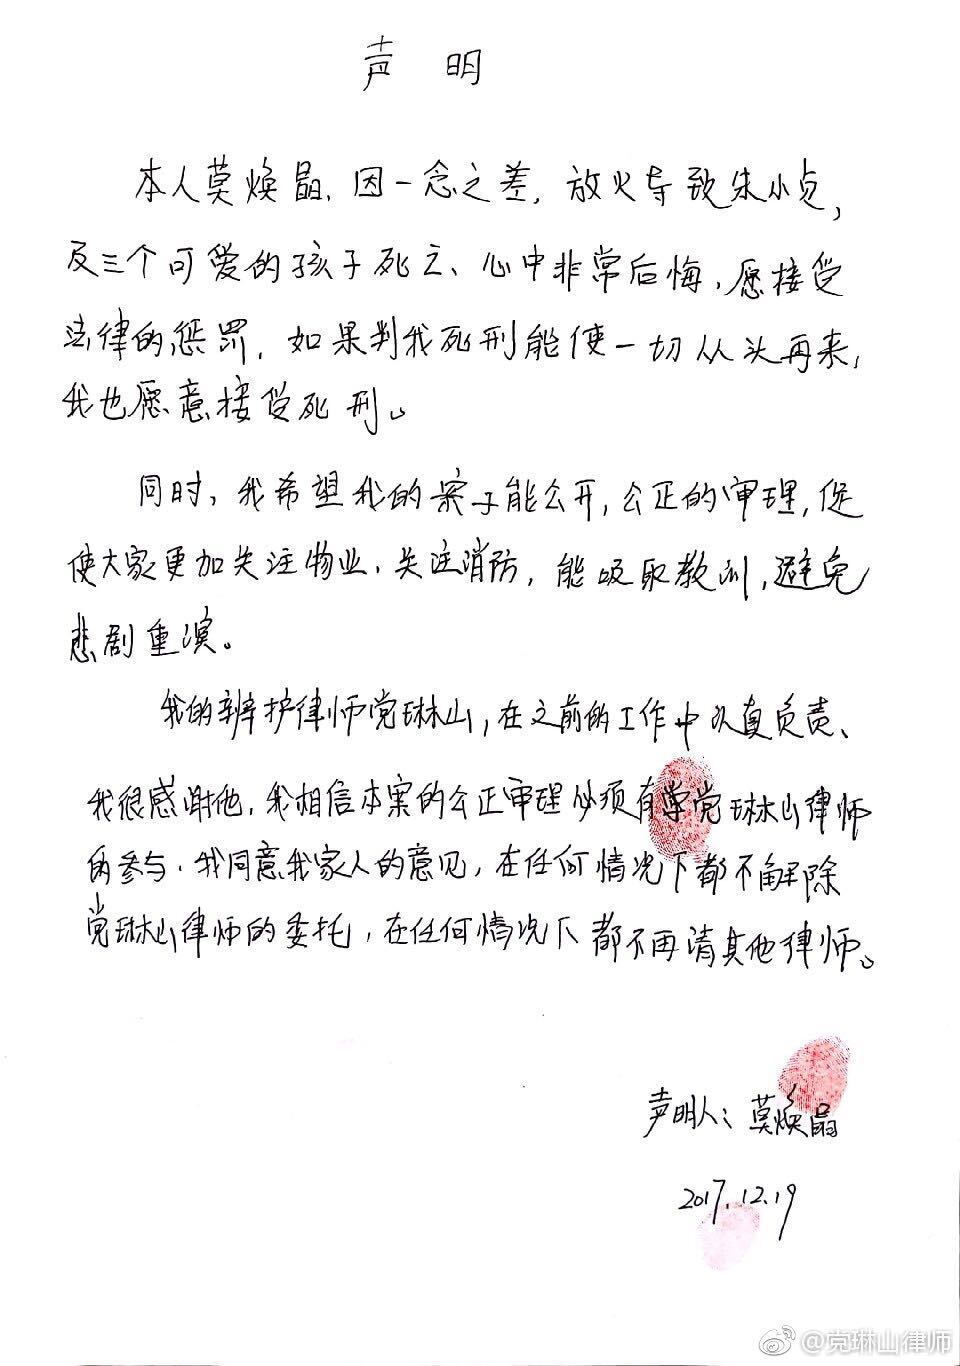 声 明
本人莫焕晶,因一念之差,放火导致朱小贞,
及三个可爱的孩子死亡、心中非常后悔,愿接受
法律的惩罚,如果判我死刑能使一切从头再来,
我也愿意接受死刑。
同时,我希望我的案子能公开,公正的审理,促
使大家更加关注物业、关注消防,能吸取教训,避免
悲剧重演。
我的辩护律师党琳山,在之前的工作中认真负责、
我很感谢他,我相信本案的公正审理必须有党琳山律师
的参与.我同意我家人的意见,在任何情况下都不解除
党琳山律师的委托,在任何情况下都不再请其他律师。
声明人:莫焕晶
2017.12.19
@党琳山律师